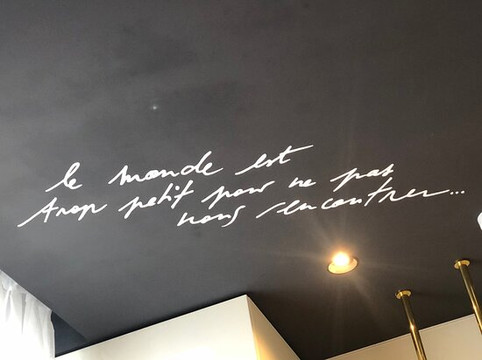 le monde est
trop petit pour ne pas
nous rencontrer...